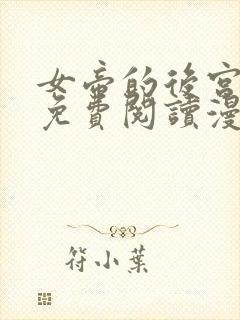 女帝的後宮
免費閱讀漫
符小葉